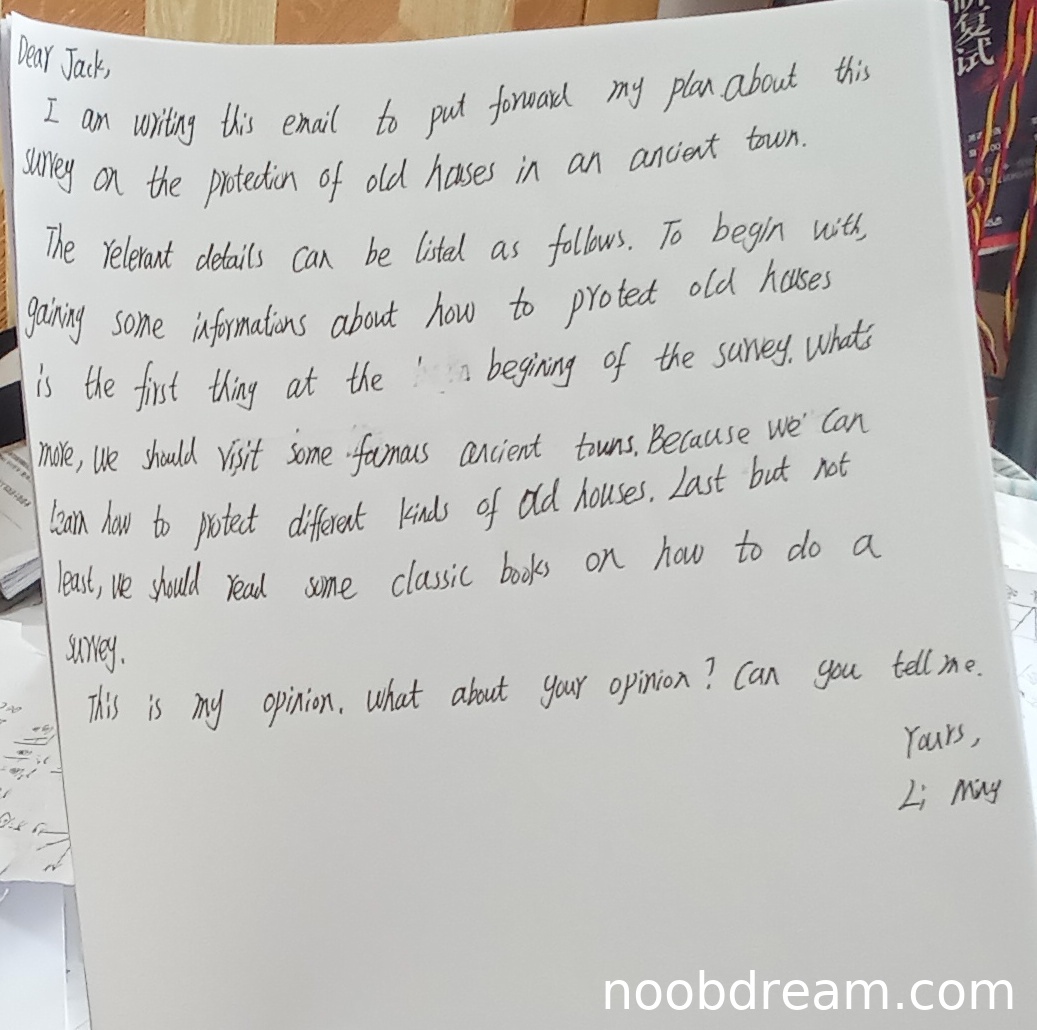 Dear Jack,
I am writing this email to put forward my plan about this
survey on the protection of old houses in an ancient town.
The relevant details can be listed as follows. To begin with,
gaining some informations about how to protect old houses
is the first thing at the begining of the survey. What's
more, we should visit some famous ancient towns. Because we can
learn how to protect different kinds of old houses. Last but not
least, we should read some classic books on how to do a
survey.
This is my opinion. What about your opinion? Can you tell me.
Yours,
Li Ming
复试
noobdream.com